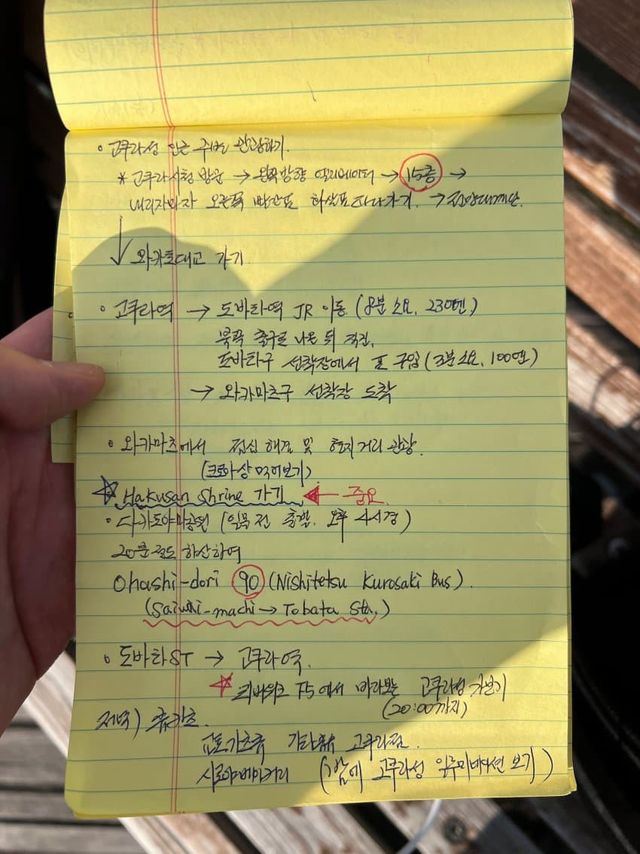 ◦ 고쿠라성 인근 주변 관광하기.
* 고쿠라시청 방문 → 왼쪽방향 엘리베이터 → 15층 →
내리자마자 오른쪽 빨간표 화살표 따라가기. → 전망대계단
↓ 와카토대교 가기
◦ 고쿠라역 → 도바타역 JR 이동 (8분 소요, 230엔)
북쪽 출구로 나온 뒤 직진.
도바타구 선착장에서 표 구입 (3분 소요, 100엔)
→ 와카마츠구 선착장 도착
◦ 와카마츠에서 점심 해결 및 현지 거리 관광.
(크로와상 먹어보기)
☆ Hakusan Shrine 가기 ← 중요
◦ 다카토야마공원 (일몰 전 출발. 오후 4시경)
20분 정도 하산하여
Ohashi-dori 90 (Nishitetsu Kurosaki Bus).
(Saiwai-machi → Tobata Sta.)
◦ 도바타ST → 고쿠라역.
☆ 리버워크 F5에서 바라보는 고쿠라성
(20:00까지)
저녁) 규카츠.
교토가츠규 고쿠라점
시로야베이커리 (밤에 고쿠라성 일루미네이션 보기)